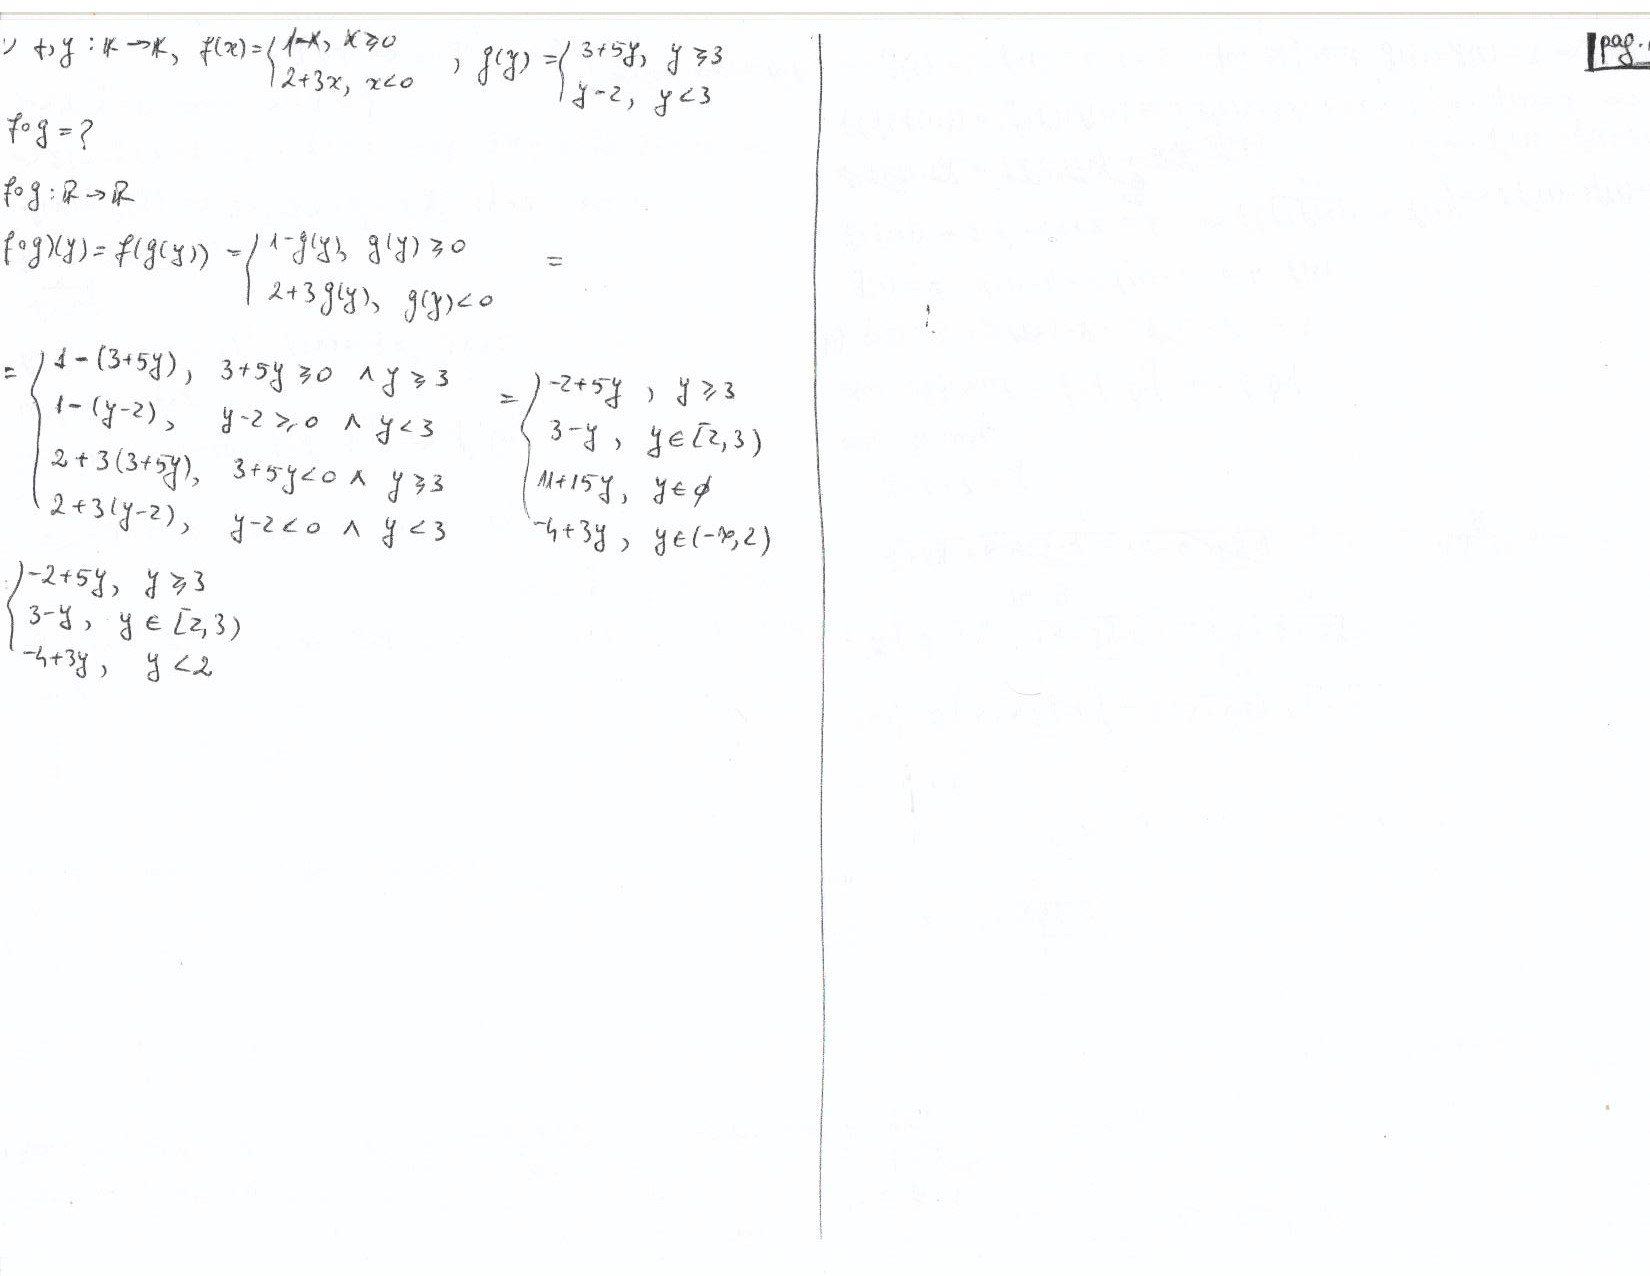 ) f,g : R→R, f(x)={1-x, x≥0 ; 2+3x, x<0 , g(y)={3+5y, y≥3 ; y-2, y<3
f∘g=?
f∘g:R→R
f∘g)(y)=f(g(y)) = {1-g(y), g(y)≥0 ; 2+3g(y), g(y)<0 =
= {1-(3+5y), 3+5y≥0 ∧ y≥3
1-(y-2), y-2≥0 ∧ y<3
2+3(3+5y), 3+5y<0 ∧ y≥3
2+3(y-2), y-2<0 ∧ y<3
= {-2+5y , y≥3
3-y , y∈[2,3)
11+15y, y∈∅
-4+3y , y∈(-∞,2)
{-2+5y, y≥3
3-y, y∈[2,3)
-4+3y, y<2
pag.